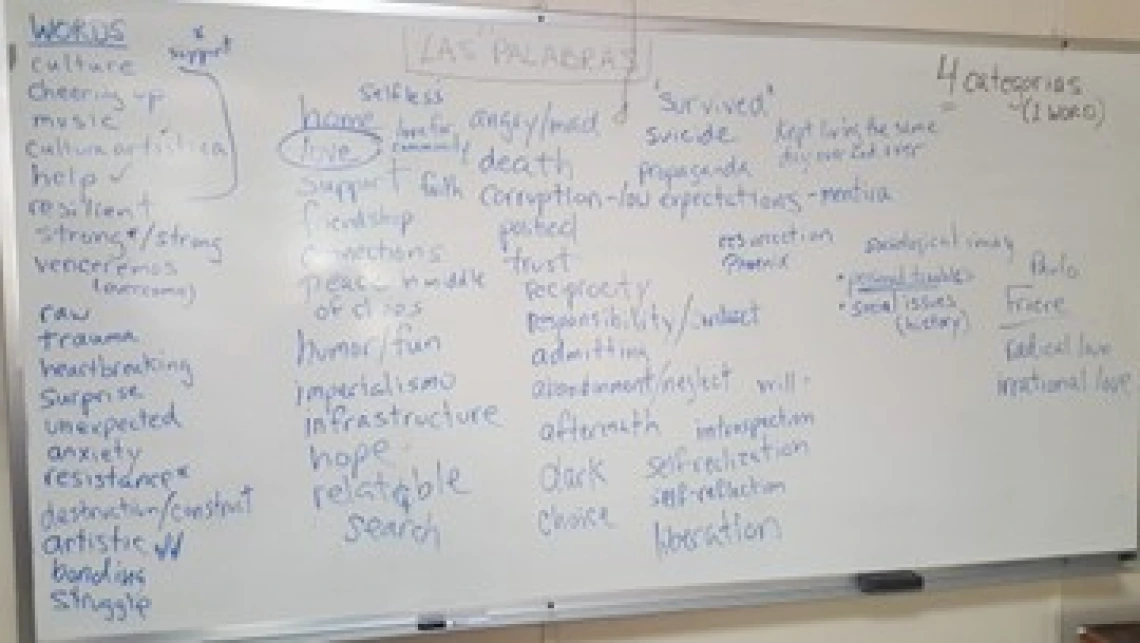 WORDS
* support
culture
cheering up
music
cultura artística
help ✓
resilient
strong*/strong
venceremos
(overcome)
raw
trauma
heartbreaking
surprise
unexpected
anxiety
resistance*
destruction/construct
artistic
bonding
struggle
"LAS PALABRAS"
selfless
home
love
love for community
support
faith
friendship
connections
peace in middle
of chaos
humor/fun
imperialismo
infrastructure
hope
relatable
search
angry/mad
death
corruption-low expectations - mentira
posted
trust
reciprocity
responsibility/
admitting
abandonment/neglect
will
aftermath
dark
choice
introspection
self-realization
self-reflection
liberation
"survived"
suicide
propaganda
kept living the same
day over and over
resurrection
Phoenix
4 categorias
(1 WORD)
sociological imag
• personal troubles
• social issues
(history)
Paulo
Friere
radical love
irrational love